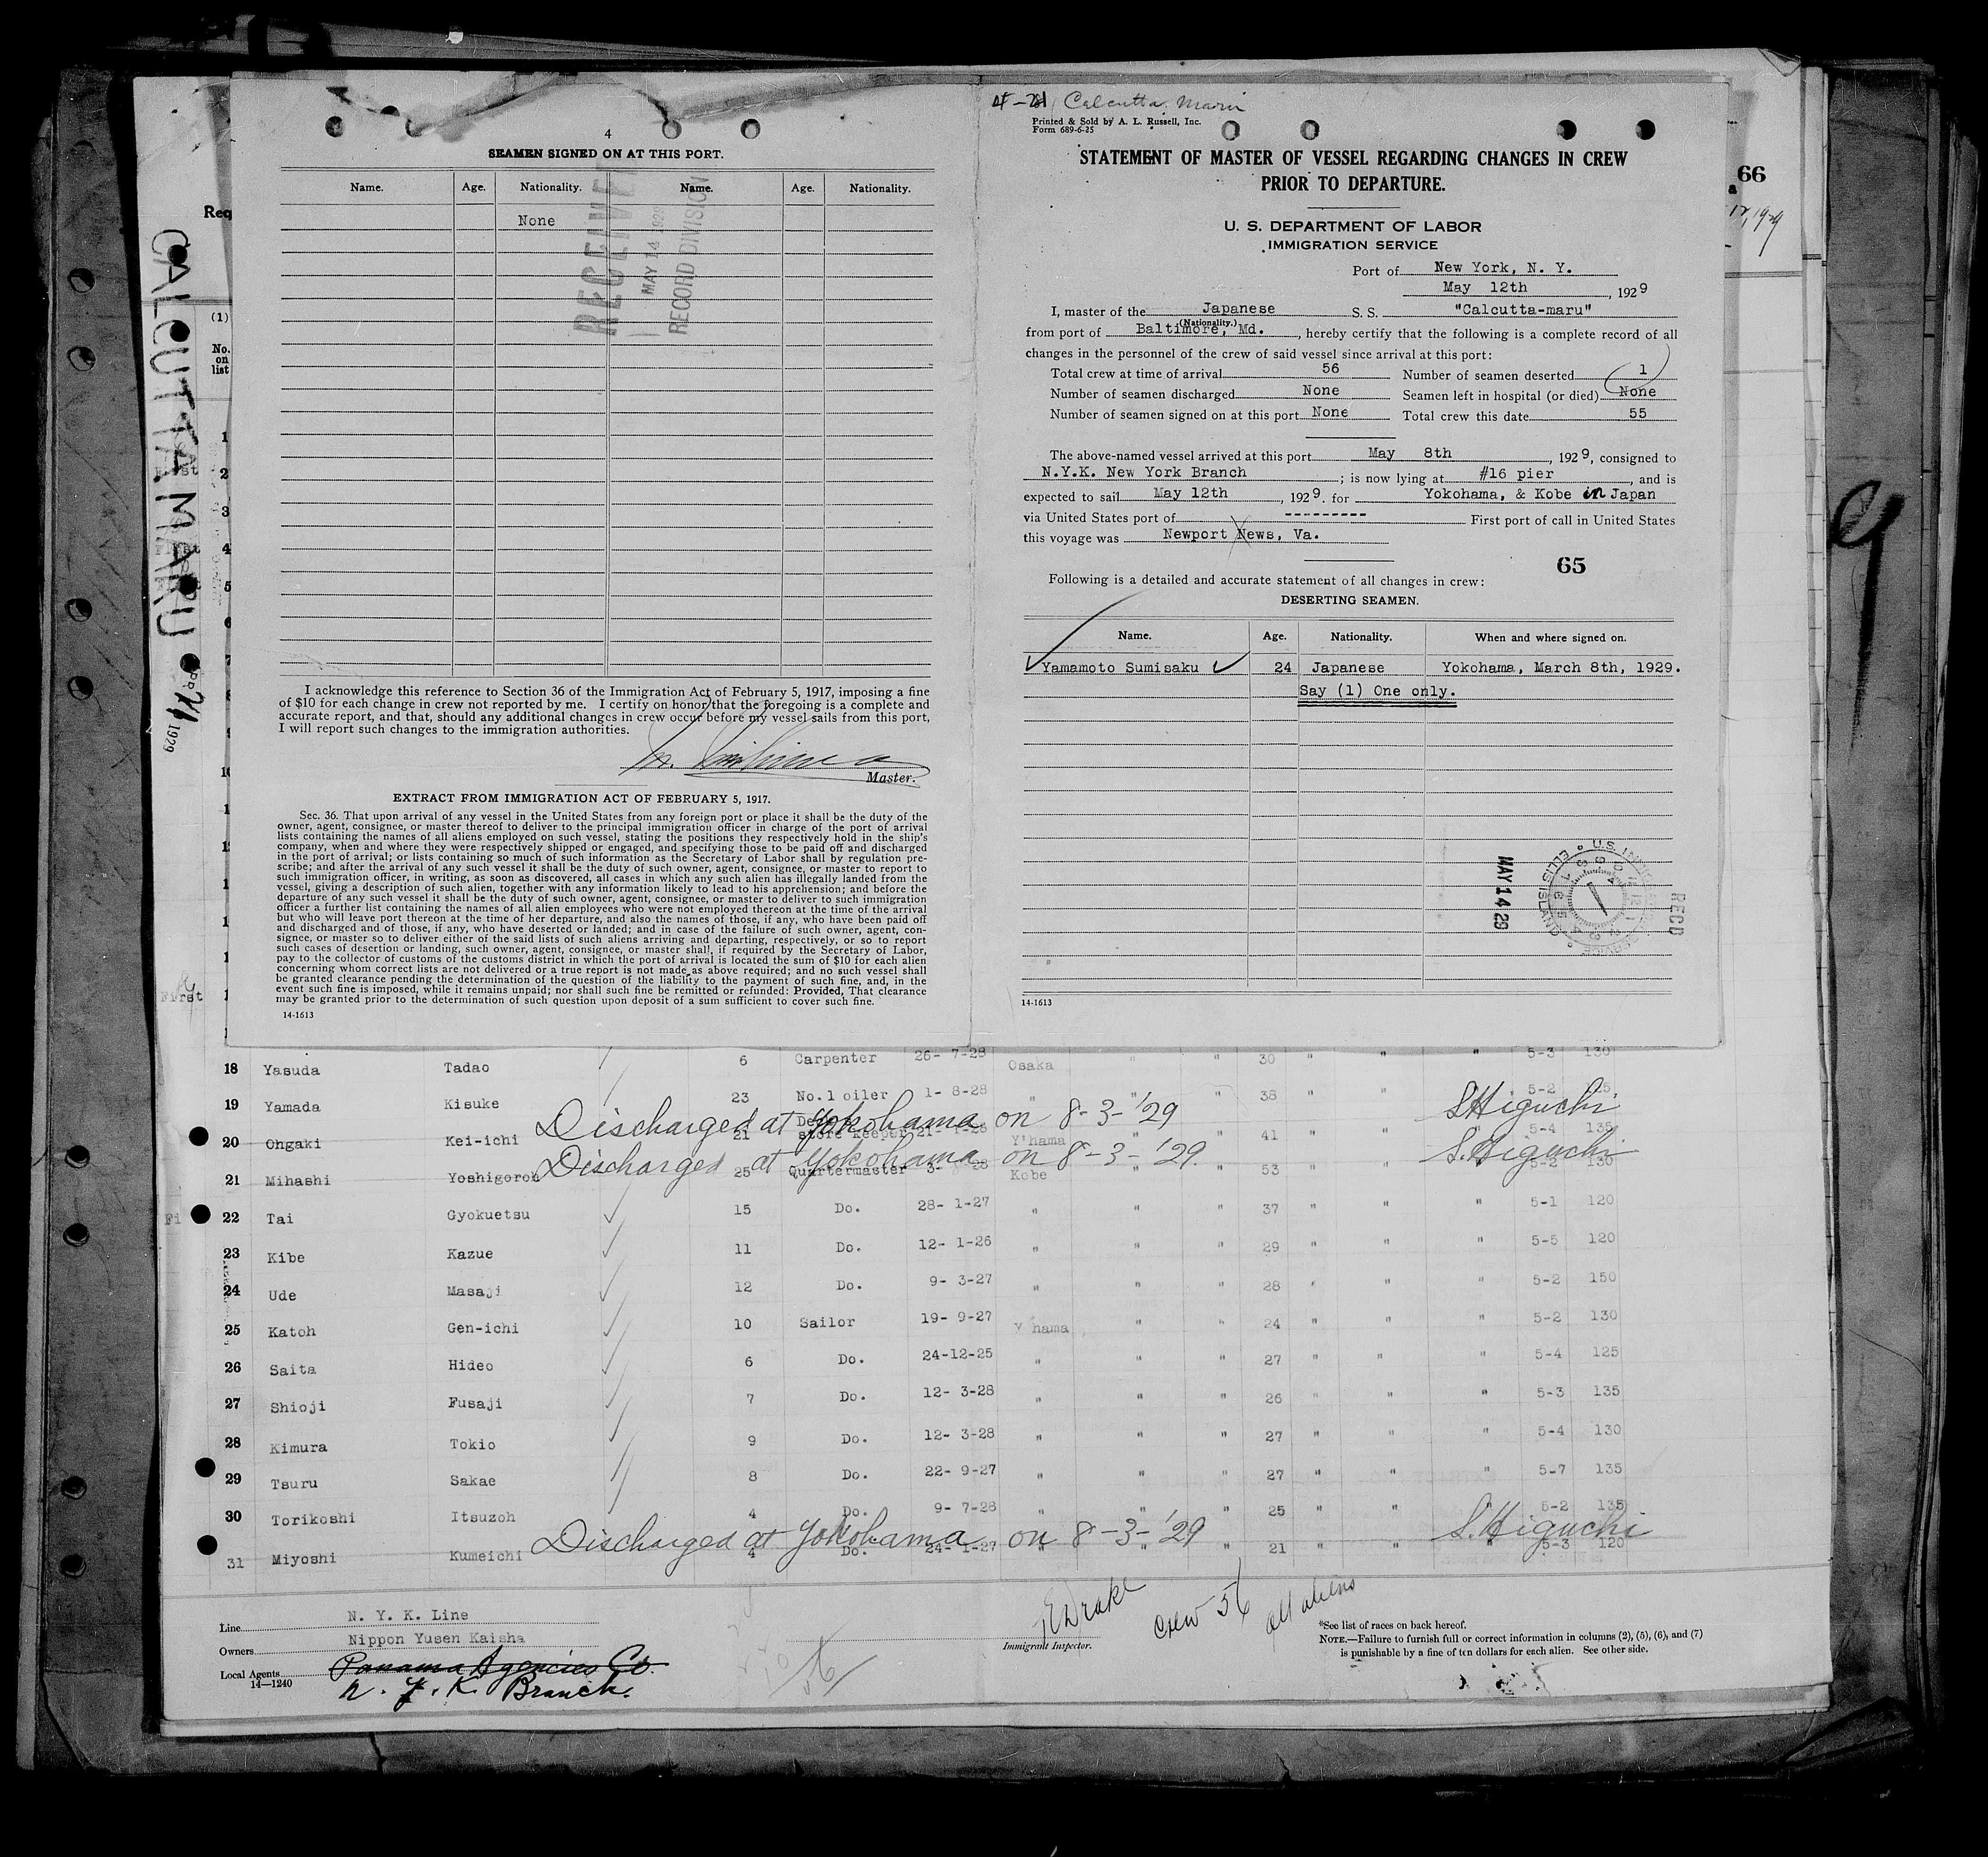 4
SEAMEN SIGNED ON AT THIS PORT.
Name. Age. Nationality. Name. Age. Nationality.
None
RECEIVED
MAY 14 1929
RECORD DIVISION
I acknowledge this reference to Section 36 of the Immigration Act of February 5, 1917, imposing a fine
of $10 for each change in crew not reported by me. I certify on honor that the foregoing is a complete and
accurate report, and that, should any additional changes in crew occur before my vessel sails from this port,
I will report such changes to the immigration authorities.
Master.
EXTRACT FROM IMMIGRATION ACT OF FEBRUARY 5, 1917.
Sec. 36. That upon arrival of any vessel in the United States from any foreign port or place it shall be the duty of the
owner, agent, consignee, or master thereof to deliver to the principal immigration officer in charge of the port of arrival
lists containing the names of all aliens employed on such vessel, stating the positions they respectively hold in the ship's
company, when and where they were respectively shipped or engaged, and specifying those to be paid off and discharged
in the port of arrival; or lists containing so much of such information as the Secretary of Labor shall by regulation pre-
scribe; and after the arrival of any such vessel it shall be the duty of such owner, agent, consignee, or master to report to
such immigration officer, in writing, as soon as discovered, all cases in which any such alien has illegally landed from the
vessel, giving a description of such alien, together with any information likely to lead to his apprehension; and before the
departure of any such vessel it shall be the duty of such owner, agent, consignee, or master to deliver to such immigration
officer a further list containing the names of all alien employees who were not employed thereon at the time of the arrival
but who will leave port thereon at the time of her departure, and also the names of those, if any, who have been paid off
and discharged and of those, if any, who have deserted or landed; and in case of the failure of such owner, agent, con-
signee, or master so to deliver either of the said lists of such aliens arriving and departing, respectively, or so to report
such cases of desertion or landing, such owner, agent, consignee, or master shall, if required by the Secretary of Labor,
pay to the collector of customs of the customs district in which the port of arrival is located the sum of $10 for each alien
concerning whom correct lists are not delivered or a true report is not made as above required; and no such vessel shall
be granted clearance pending the determination of the question of the liability to the payment of such fine, and, in the
event such fine is imposed, while it remains unpaid; nor shall such fine be remitted or refunded: Provided, That clearance
may be granted prior to the determination of such question upon deposit of a sum sufficient to cover such fine.
14-1613
Calcutta Maru
Printed & Sold by A. L. Russell, Inc.
Form 689-6-25
STATEMENT OF MASTER OF VESSEL REGARDING CHANGES IN CREW
PRIOR TO DEPARTURE.
U. S. DEPARTMENT OF LABOR
IMMIGRATION SERVICE
Port of New York, N. Y.
May 12th, 1929
I, master of the Japanese S. S. "Calcutta-maru"
(Nationality.)
from port of Baltimore, Md., hereby certify that the following is a complete record of all
changes in the personnel of the crew of said vessel since arrival at this port:
Total crew at time of arrival 56 Number of seamen deserted 1
Number of seamen discharged None Seamen left in hospital (or died) None
Number of seamen signed on at this port None Total crew this date 55
The above-named vessel arrived at this port May 8th, 1929, consigned to
N.Y.K. New York Branch; is now lying at #16 pier, and is
expected to sail May 12th, 1929. for Yokohama, & Kobe in Japan
via United States port of -------- First port of call in United States
this voyage was Newport News, Va.
65
Following is a detailed and accurate statement of all changes in crew:
DESERTING SEAMEN.
Name. Age. Nationality. When and where signed on.
Yamamoto Sumisaku 24 Japanese Yokohama, March 8th, 1929.
Say (1) One only.
MAY 14 29
U.S. IMMIGRATION SERVICE ELLIS ISLAND
REC'D
14-1613
66
12, 1929
CALCUTTA MARU
APR 21 1929
Req
(1)
No.
on
list
1
2
3
4
5
6
7
8
9
First
18 Yasuda Tadao 6 Carpenter 26- 7-28 Osaka " " 30 " " " 5-3 130
19 Yamada Kisuke 23 No.1 oiler 1- 8-28 " " " 38 " " 5-2
Discharged at Yokohama on 8-3-'29 S.Higuchi
20 Ohgaki Kei-ichi 21 store keeper Y'hama " " 41 " " " 5-4 135
Discharged at Yokohama on 8-3-'29. S.Higuchi
21 Mihashi Yoshigoroh 25 Quartermaster Kobe " " 53 " " " 5-2 130
22 Tai Gyokuetsu 15 Do. 28- 1-27 " " " 37 " " " 5-1 120
23 Kibe Kazue 11 Do. 12- 1-26 " " " 29 " " " 5-5 120
24 Ude Masaji 12 Do. 9- 3-27 " " " 28 " " " 5-2 150
25 Katoh Gen-ichi 10 Sailor 19- 9-27 Y'hama " " 24 " " " 5-2 130
26 Saita Hideo 6 Do. 24-12-25 " " " 27 " " " 5-4 125
27 Shioji Fusaji 7 Do. 12- 3-28 " " " 26 " " " 5-3 135
28 Kimura Tokio 9 Do. 12- 3-28 " " " 27 " " " 5-4 130
29 Tsuru Sakae 8 Do. 22- 9-27 " " " 27 " " " 5-7 135
30 Torikoshi Itsuzoh 4 Do. 9- 7-28 " " " 25 " " " 5-2 135
Discharged at Yokohama on 8-3-'29 S.Higuchi
31 Miyoshi Kumeichi 4 Do. 24- 1-27 " " " 21 " " " 5-3 120
Line N. Y. K. Line
Owners Nippon Yusen Kaisha
Local Agents Panama Agencies Co.
14—1240
N. Y. K. Branch.
56
Drake
Immigrant Inspector.
Crew 56 all aliens
*See list of races on back hereof.
NOTE.—Failure to furnish full or correct information in columns (2), (5), (6), and (7)
is punishable by a fine of ten dollars for each alien. See other side.